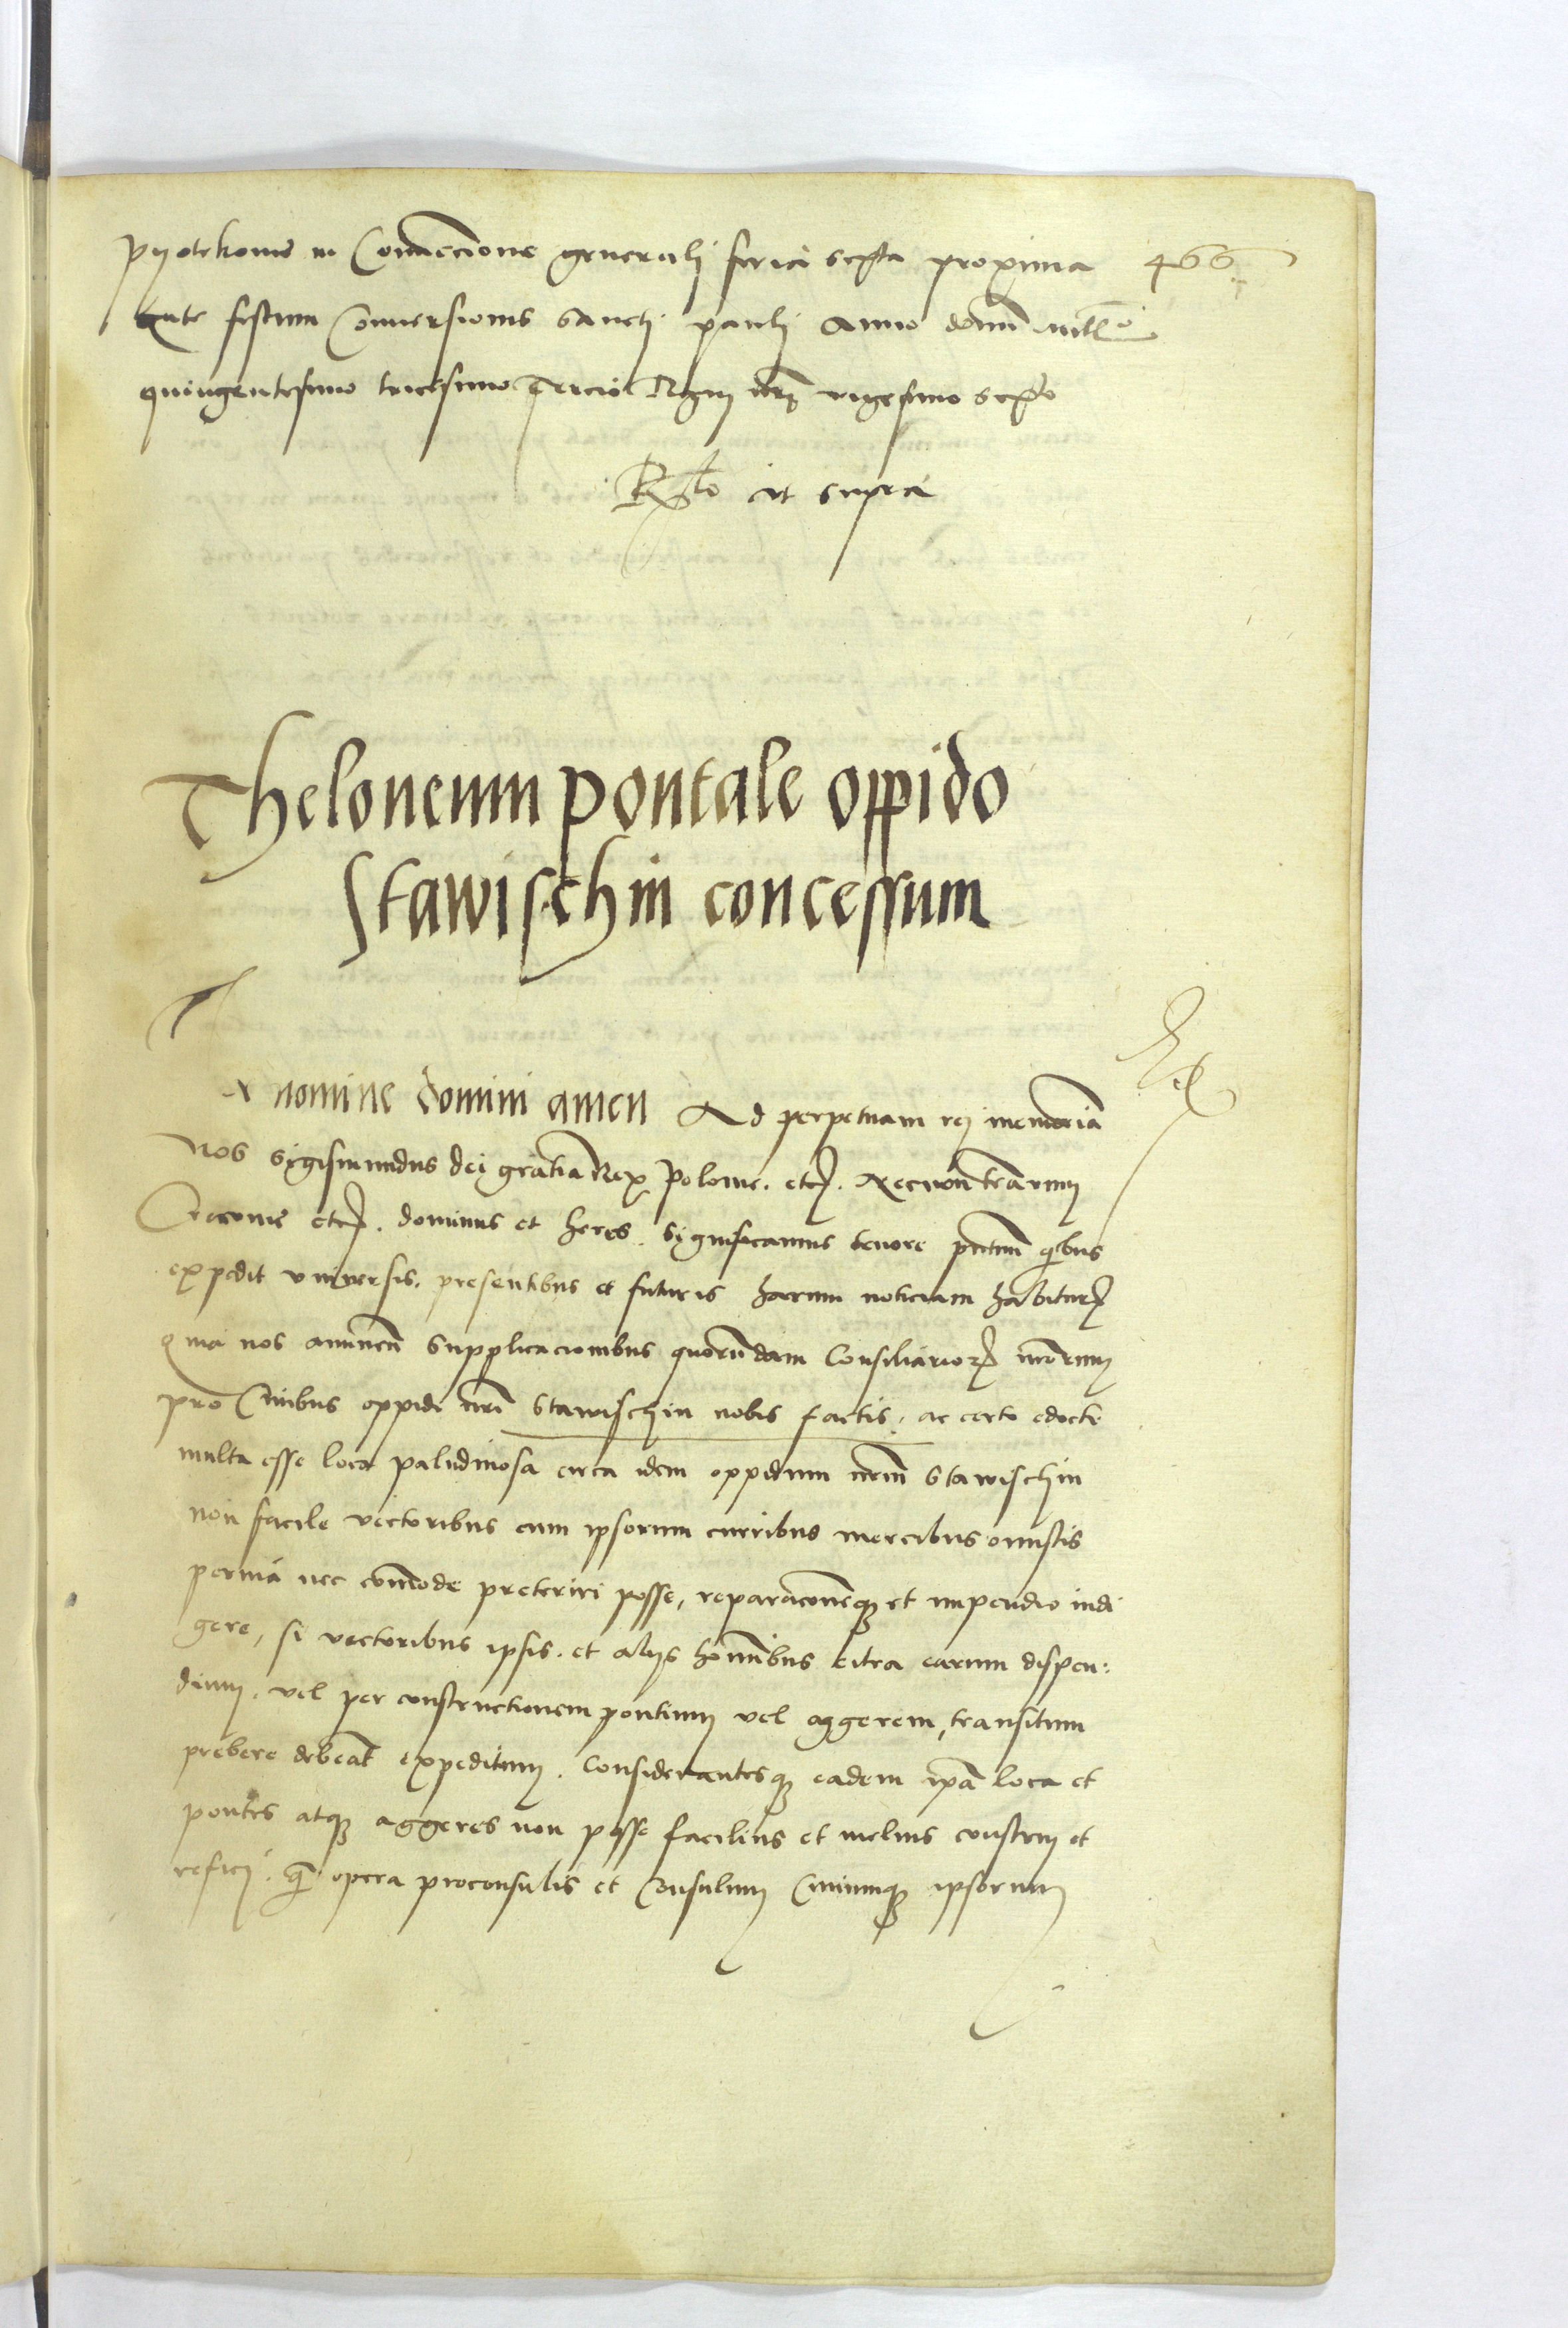 Pyotrkowie in Conuencione generali feria sexta proxima 466
Ante festum Conuersionis sancti pauli Anno domini millo
quingentesimo tricesimo tercio Regni nri vigesimo septo
Rlo ut supra
Theloneum pontale oppido
Stawischin concessum
In nomine domini amen Ad perpetuam rei memoria
Nos Sigismundus dei gratia Rex Polonie. etc. Necnon terrarum
Cracouie etc. dominus et heres. Significamus tenore pntium quibus
expedit vniuersis. presentibus et futuris harum noticiam habitur
quia nos annuen supplicacionibus quorundam Consiliarior nrorum
pro Ciuibus oppidi nri Stawischin nobis factis. ac certo edocti
multa esse loca paludinosa circa idem oppidum nrum Stawischin
non facile vectoribus cum ipsorum curribus mercibus onustis
peruia nec commode preteriri posse, reparacioneq et impendio indi
gere, si vectoribus ipsis. et alijs hominibus citra earum dispen:
dium. vel per constructionem pontium vel aggerem, transitum
prebere debeat expeditum. Considerantesq eadem ipa loca et
pontes atq aggeres non posse facilius et melius construi et
refici. q opera proconsulis et Consulum Ciuiumq ipsorum